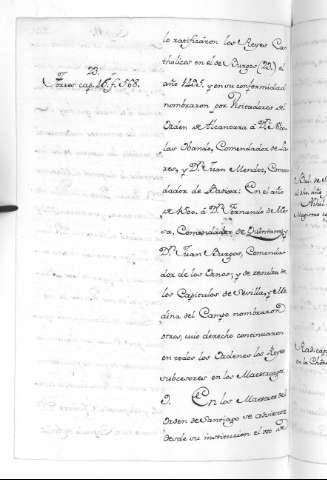 lo ratificáron los Reyes Ca-
tholicos en el de Burgos (B.) el
año 1495. y en su conformidad
nombraron por Visitadores del
Orden de Alcantara à Dn. Nico-
las Obando, Comendador de La-
res, y Dn. Juan Mendez, Comen-
dador de : En el año
de 1500. á Dn. Fernando de Me-
sa, Comendador de Quintana, y
Dn. Juan Burgos, Comenda-
dor de los Ornos; y de resulta de
los Capitulos de Sevilla, y Me-
dina del Campo nombraron
otros, cuio derecho continuaron
en todas las Ordenes los Reyes
subcesores en los Maestrazgos.
9. En los Maestres del
Orden de Santiago se advierte
desde su institucion el uso de
B.
Torres cap. 18. f. 568.
en la